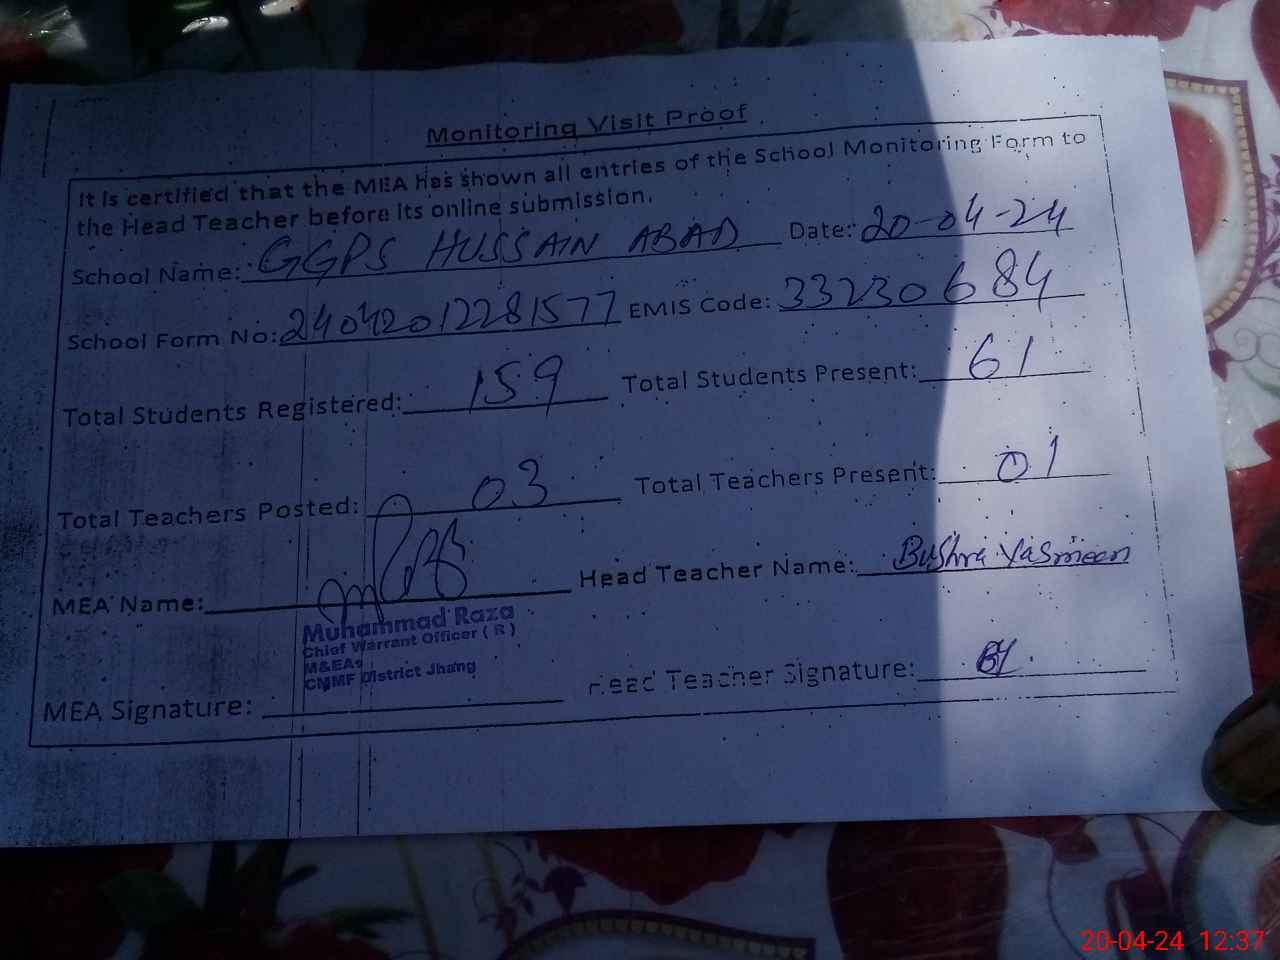 Monitoring Visit Proof
It is certified that the MEA has shown all entries of the School Monitoring Form to
the Head Teacher before its online submission.
School Name: GGPS HUSSAIN ABAD Date: 20-04-24
School Form No: 24042012281577 EMIS Code: 33230684
Total Students Registered: 159 Total Students Present: 61
Total Teachers Posted: 03 Total Teachers Present: 01
MEA Name: Head Teacher Name: Bushra Yasmeen
Muhammad Raza
Chief Warrant Officer ( R )
M&EAs
CMMF District Jhang
MEA Signature: Head Teacher Signature: BY
20-04-24 12:37